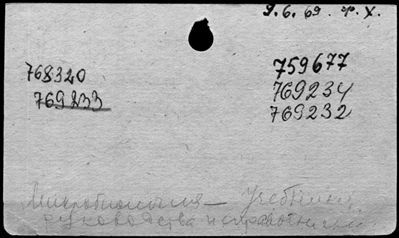 9.6.69. Ф.Х.
768320
769233
759677
769234
769232
Микробиология — Учебники,
руководства и справочники